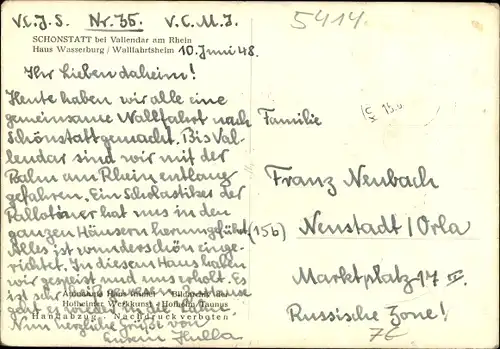 V.C.J.S. Nr. 35. V.C.M.J.
5414
SCHÖNSTATT bei Vallendar am Rhein
Haus Wasserburg / Wallfahrtsheim 10. Juni 48.
Ihr Lieben daheim!
Heute haben wir alle eine
gemeinsame Wallfahrt nach
Schönstatt gemacht. Bis Val-
lendar sind wir mit der
Bahn am Rhein entlang
gefahren. Ein Scholastiker der
Pallotiner hat uns in den
ganzen Häusern herumgeführt.
Alles ist wunderschön einge-
richtet. In diesem Haus haben
wir gespeist und uns erholt. Es
ist sehr
Hofheimer Werkkunst - Hofheim/Taunus
geht es wieder in die
Handabzug - Nachdruck verboten
Nun herzliche Grüße von
Eurem
Familie
Franz Neubach
(15b) Neustadt/Orla
Marktplatz 17 IV.
Russische Zone!
7E